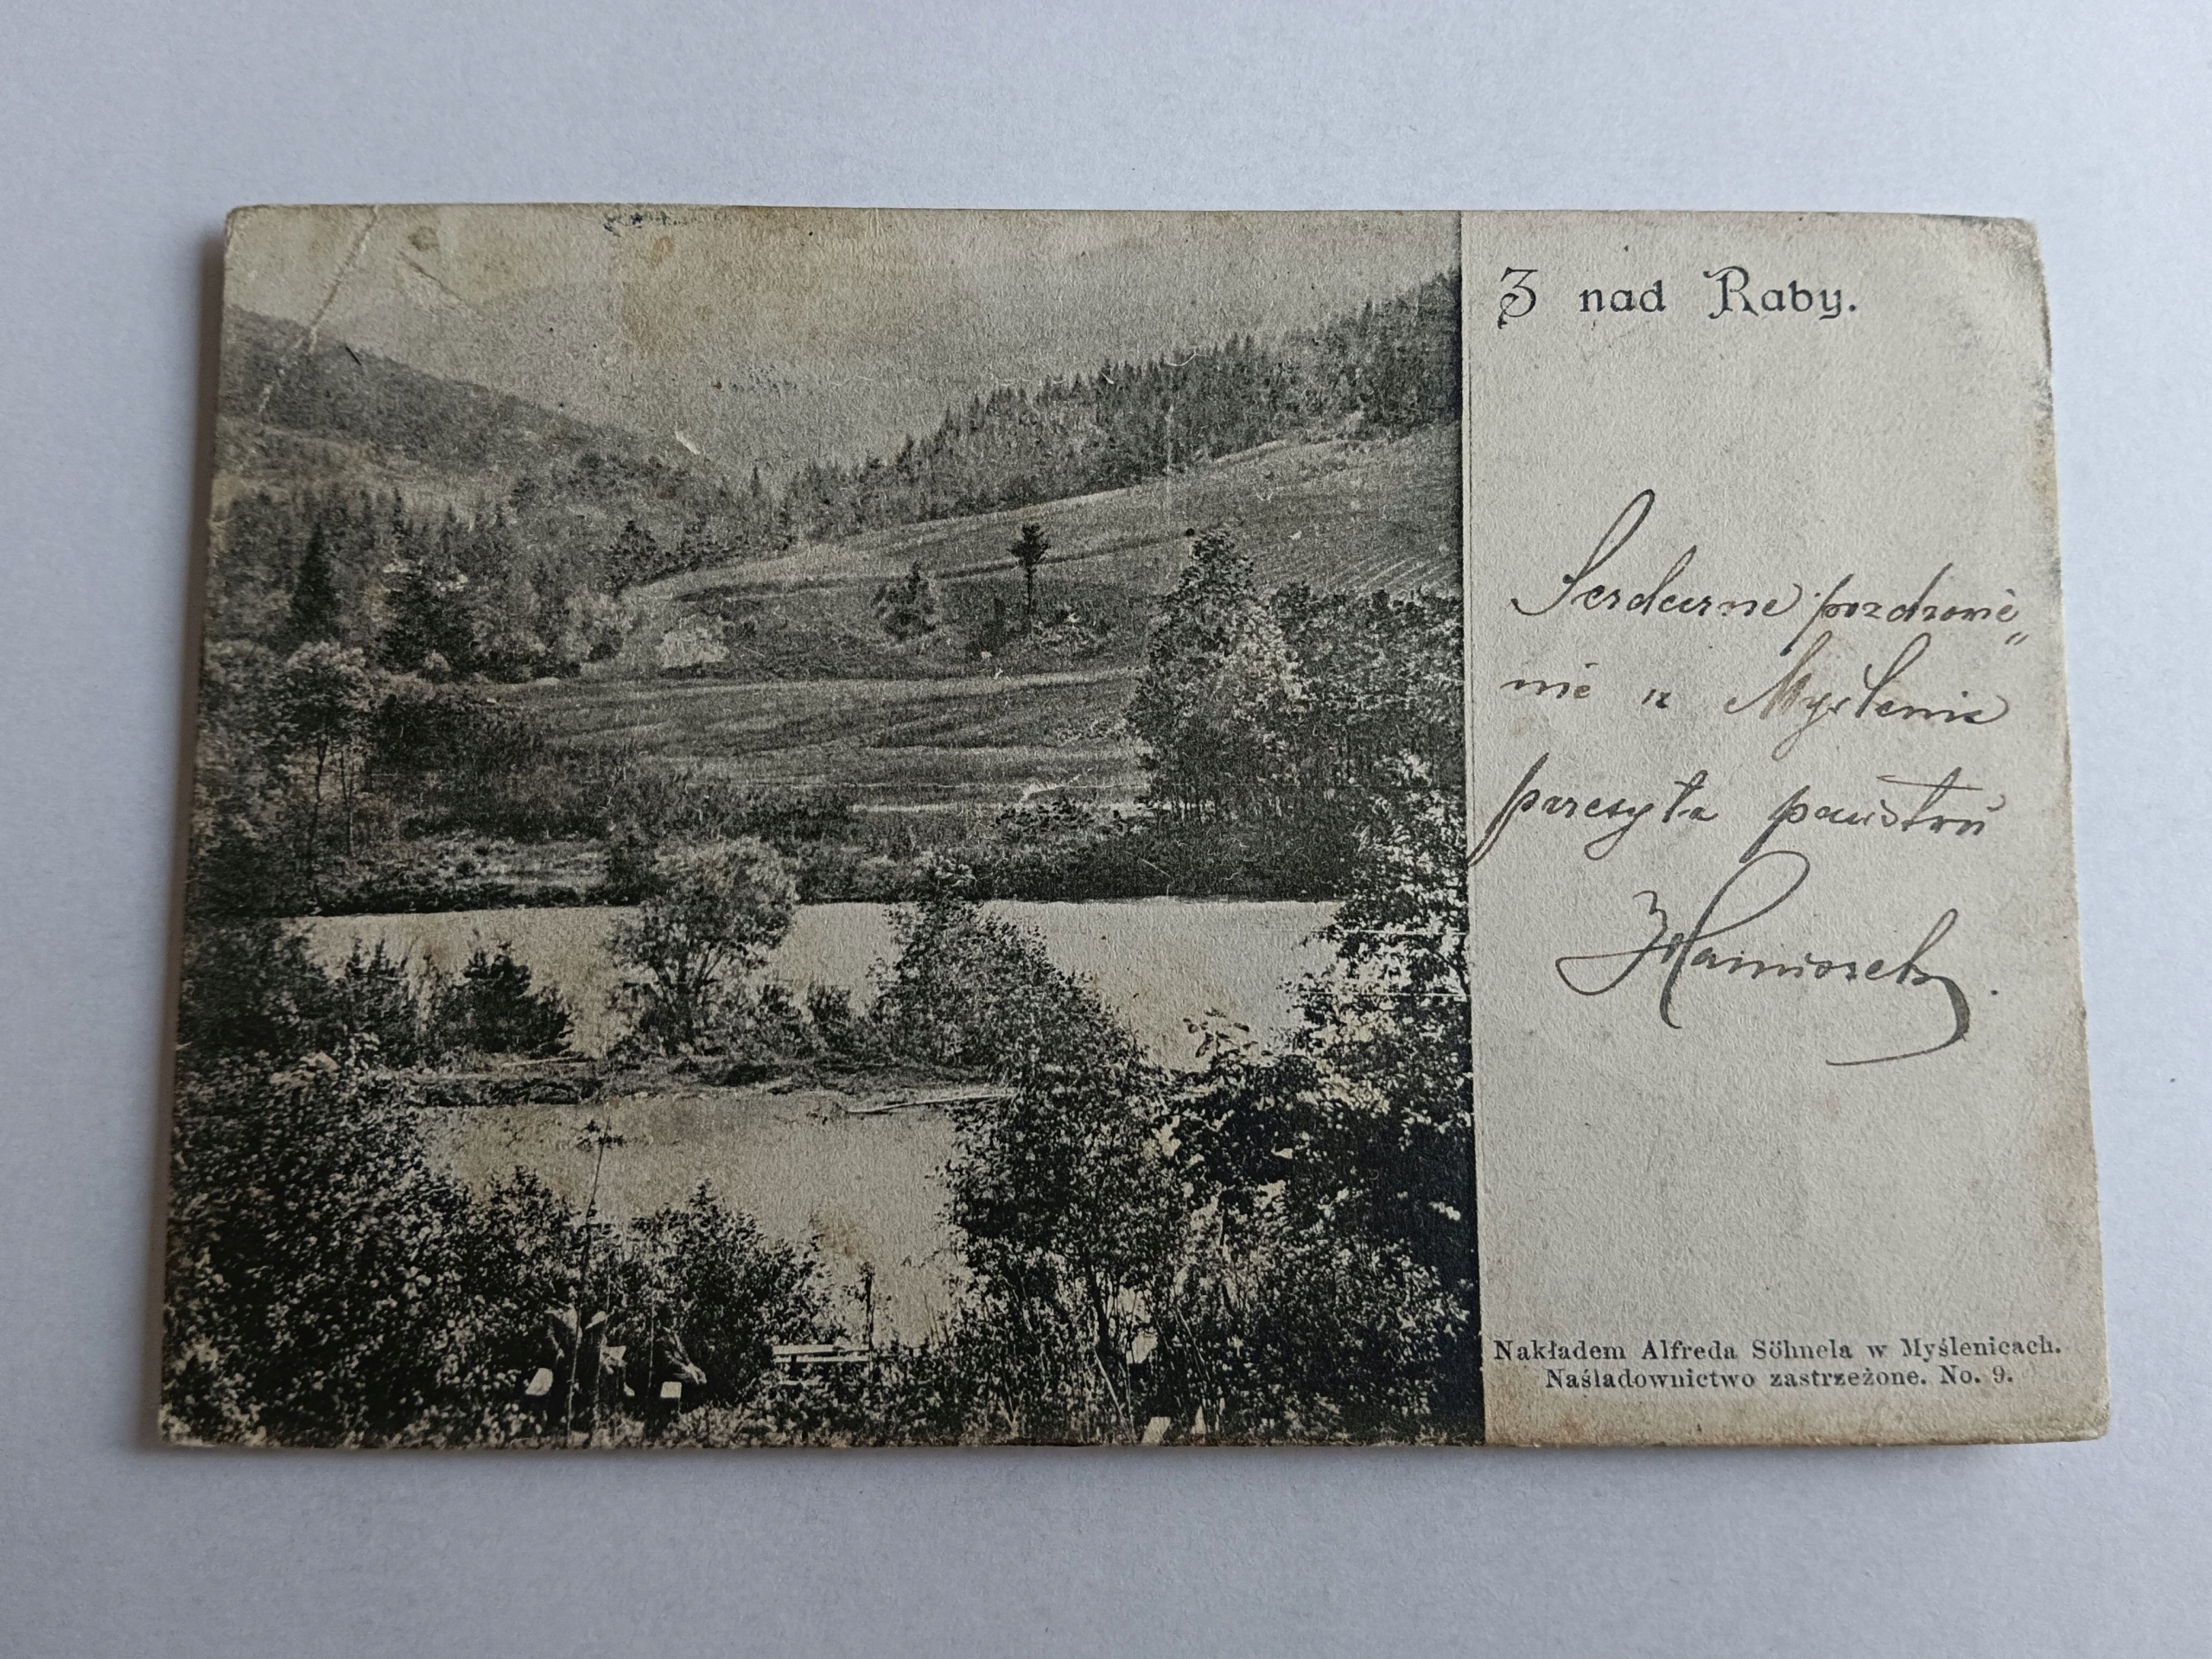 Z nad Raby.
Serdeczne pozdrowie„
nie z Myślenic
przesyła państwu
Nakładem Alfreda Söhnela w Myślenicach.
Naśladownictwo zastrzeżone. No. 9.